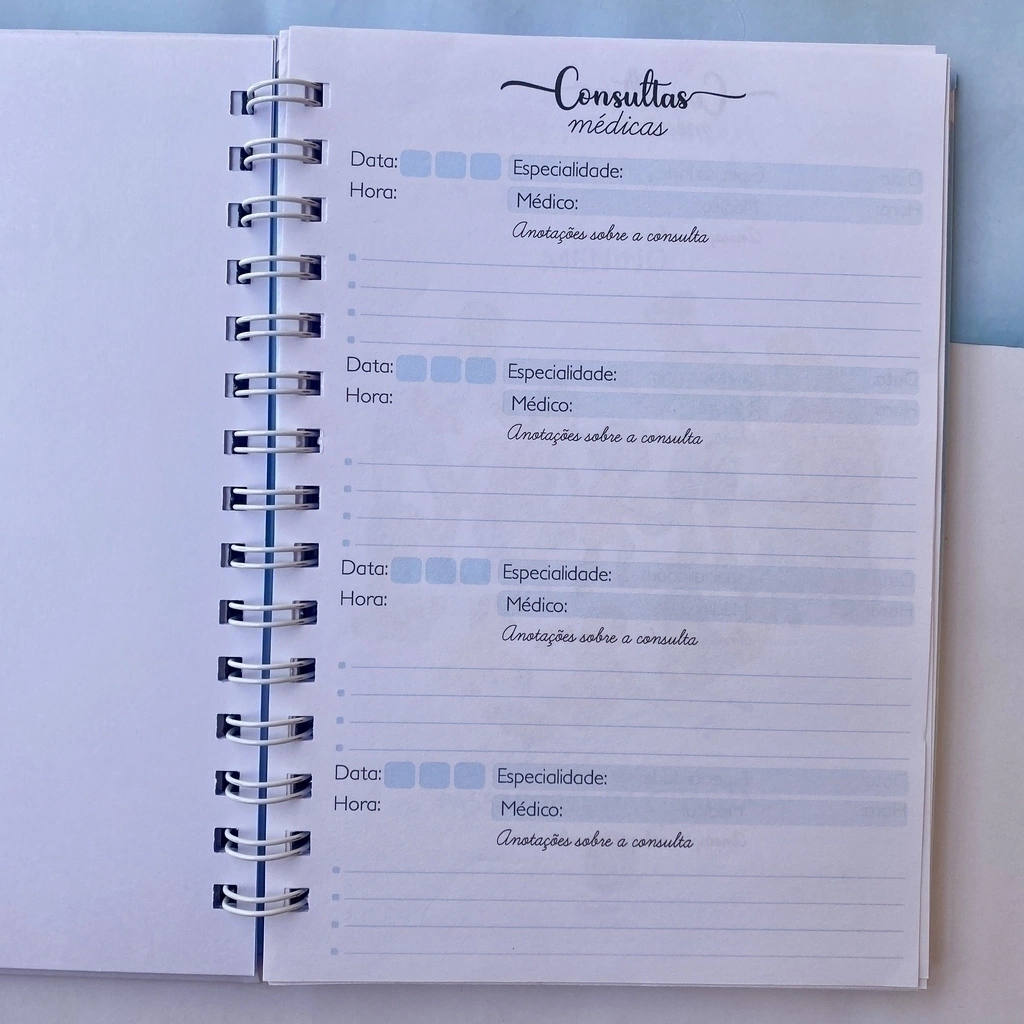 Consultas
médicas
Data: Especialidade:
Hora: Médico:
Anotações sobre a consulta
Data: Especialidade:
Hora: Médico:
Anotações sobre a consulta
Data: Especialidade:
Hora: Médico:
Anotações sobre a consulta
Data: Especialidade:
Hora: Médico:
Anotações sobre a consulta